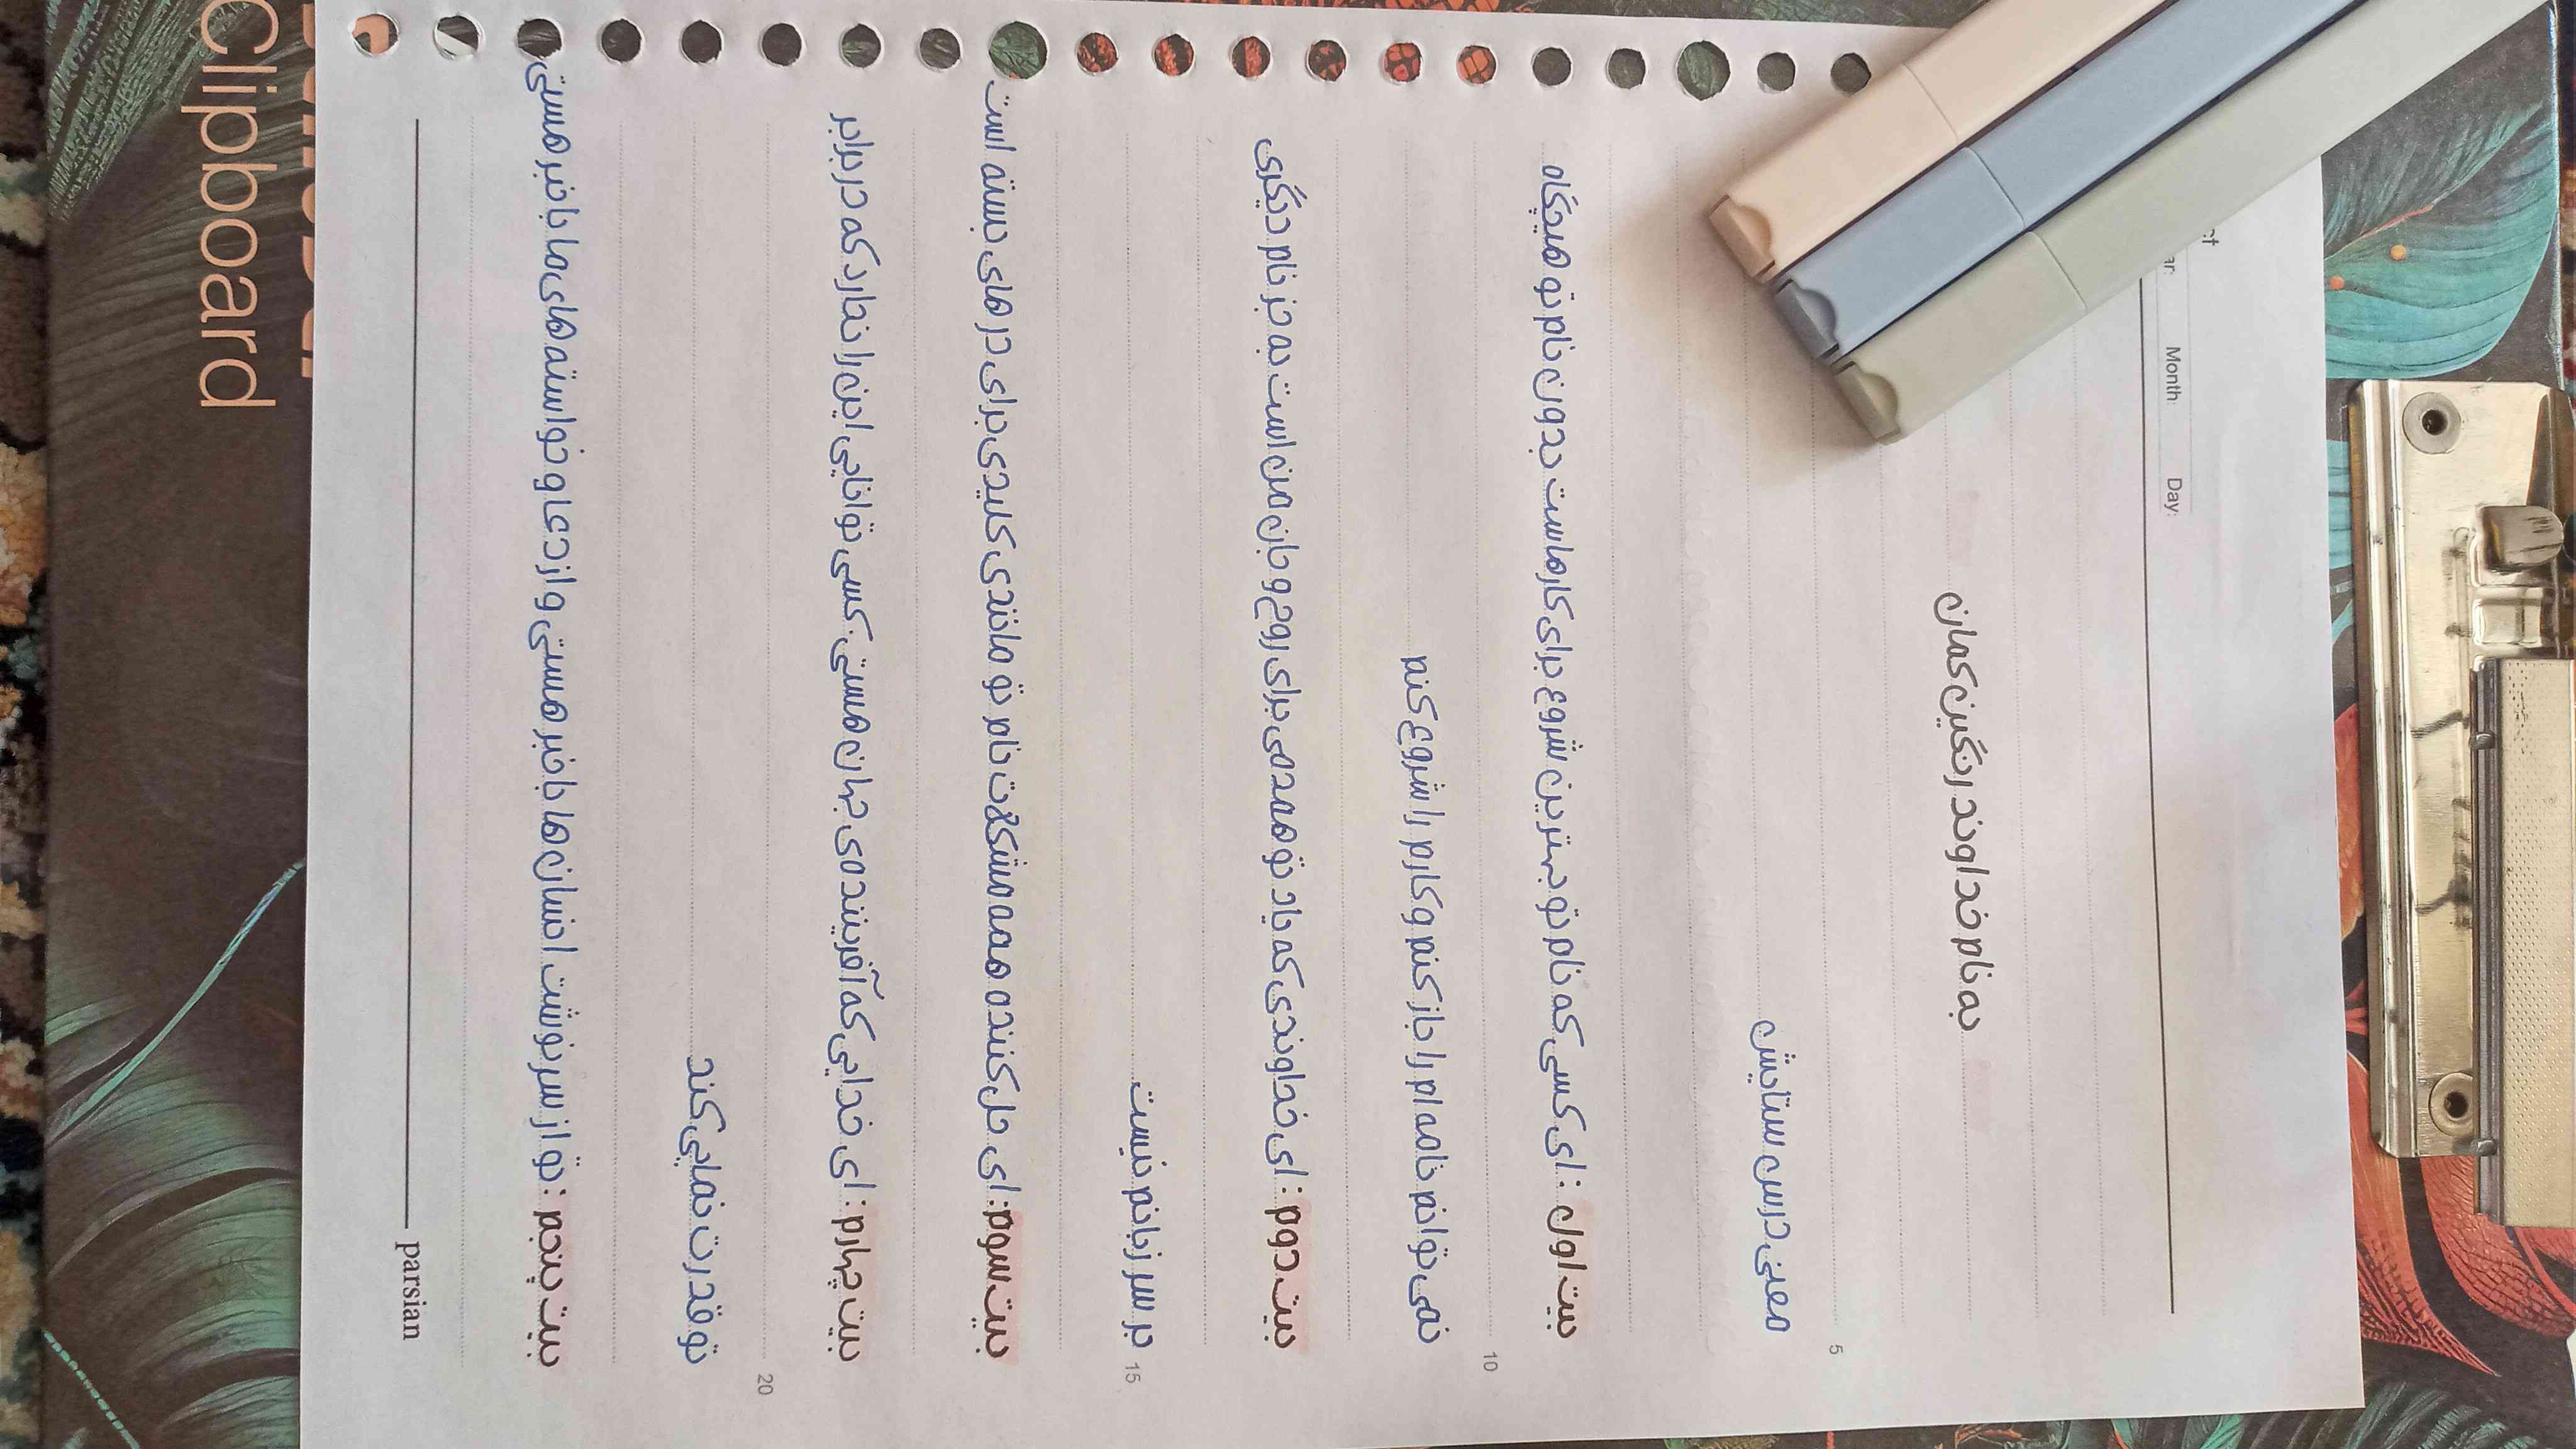 Month:
Day:
به نام خداوند رنگین کمان
5
معنی درس ستایش
بیت اول : ای کسی که نام تو بهترین شروع برای کارهاست بدون نام تو هیچگاه
10
نمی توانم نامه ام را باز کنم و کارم را شروع کنم
بیت دوم : ای خداوندی که یاد تو همدمی برای روح و جان من است به جز نام دیگری
15
بر سر زبانم نیست
بیت سوم : ای حل کننده همه مشکلات نام تو مانندی کلیدی برای در های بسته است
بیت چهارم : ای خدایی که آفریننده ی جهان هستی . کسی توانایی این را ندارد که در برابر
20
تو قدرت نمایی کند
بیت پنجم : تو از سرنوشت انسان ها با خبر هستی و از دعا و خواسته های ما با خبر هستی
parsian
Clipboard